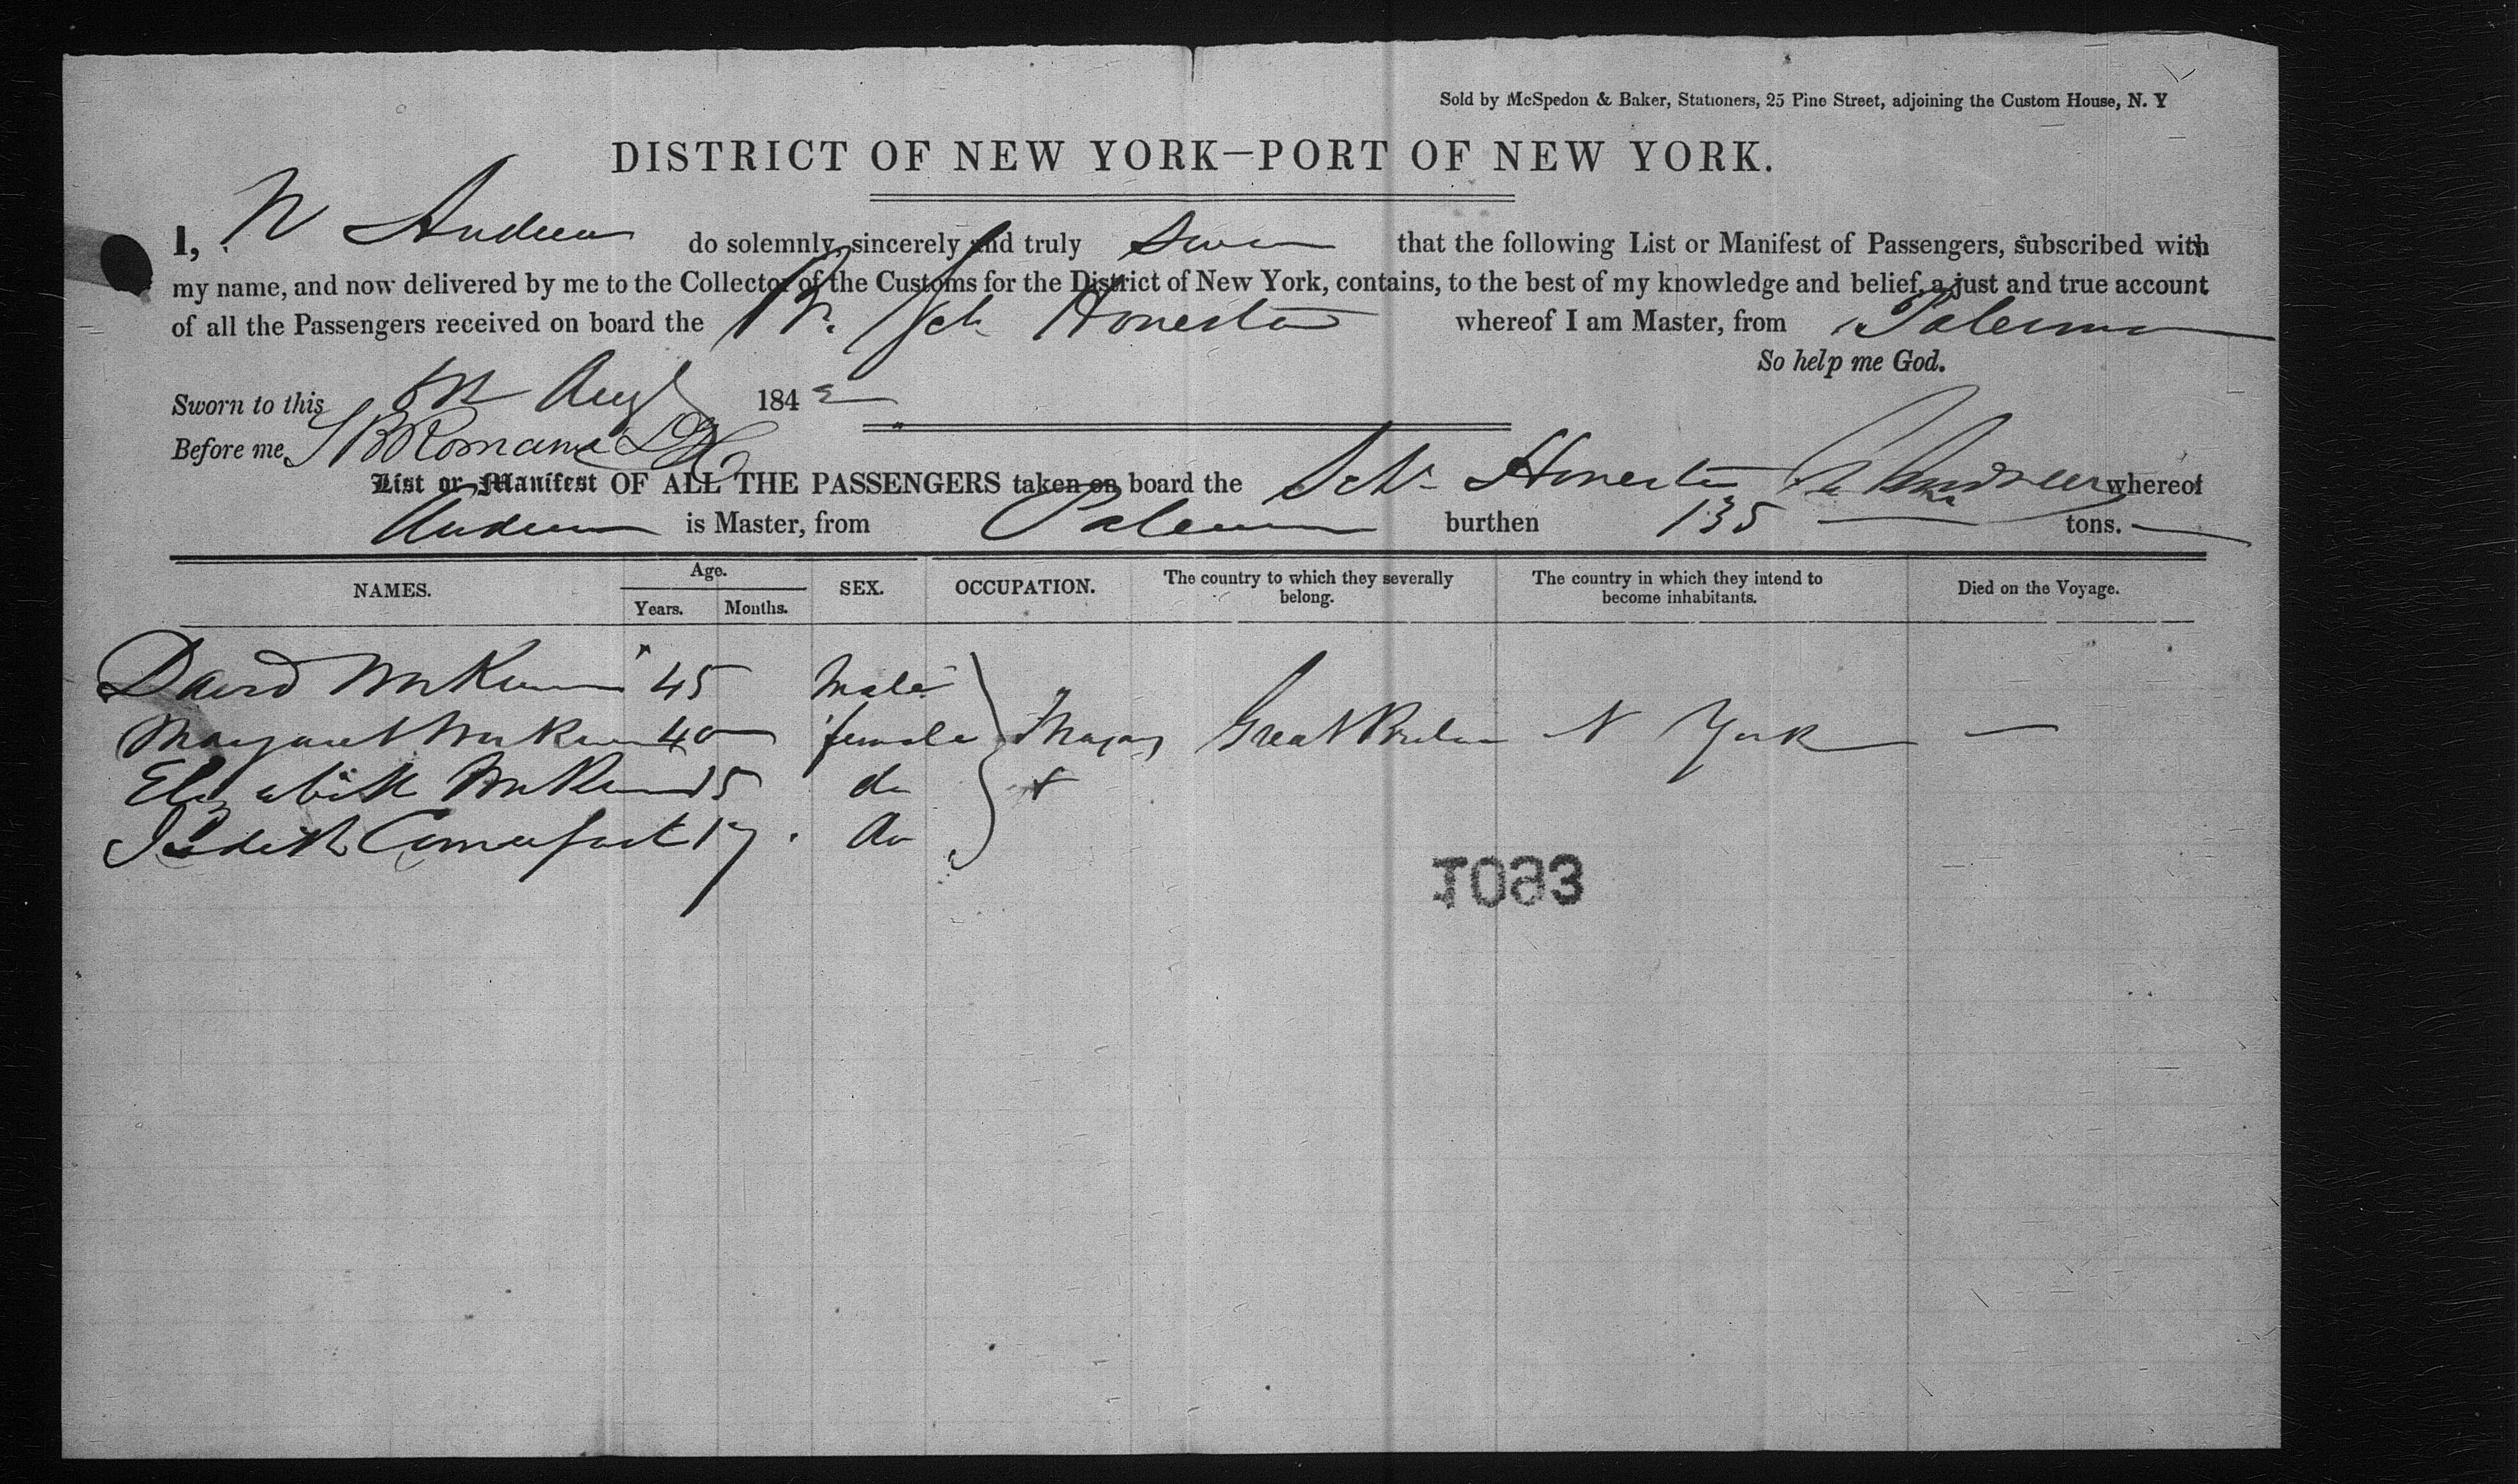 Sold by McSpedon & Baker, Stationers, 25 Pine Street, adjoining the Custom House, N. Y
DISTRICT OF NEW YORK—PORT OF NEW YORK.
I, N Andrews do solemnly, sincerely and truly swear that the following List or Manifest of Passengers, subscribed with
my name, and now delivered by me to the Collector of the Customs for the District of New York, contains, to the best of my knowledge and belief, a just and true account
of all the Passengers received on board the Br. Sch Honesta whereof I am Master, from Palermo
So help me God.
Sworn to this Augt 184
Before me,
List or Manifest OF ALL THE PASSENGERS taken on board the Schr Honesta whereof
Andrews is Master, from Palermo burthen 135 tons.
NAMES. Age. Years. Months. SEX. OCCUPATION. The country to which they severally belong. The country in which they intend to become inhabitants. Died on the Voyage.
David 45 Male
Margaret 40 female Great Britain N York —
Elizabeth 15 do
17 do
1063